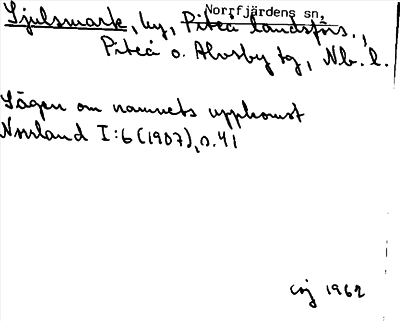 Norrfjärdens sn,
Sjulsmark, by, Piteå landsförs.,
Piteå o. Älvsby tg, Nb. l.
Sägen om namnets uppkomst
Norrland I:6 (1907), s. 41
1962